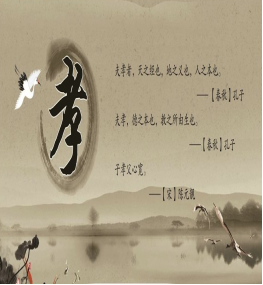 孝
夫孝者，天之经也，地之义也，人之本也。
——【春秋】孔子
夫孝，德之本也，教之所由生也。
——【春秋】孔子
子孝父心宽。
——【宋】陈元靓